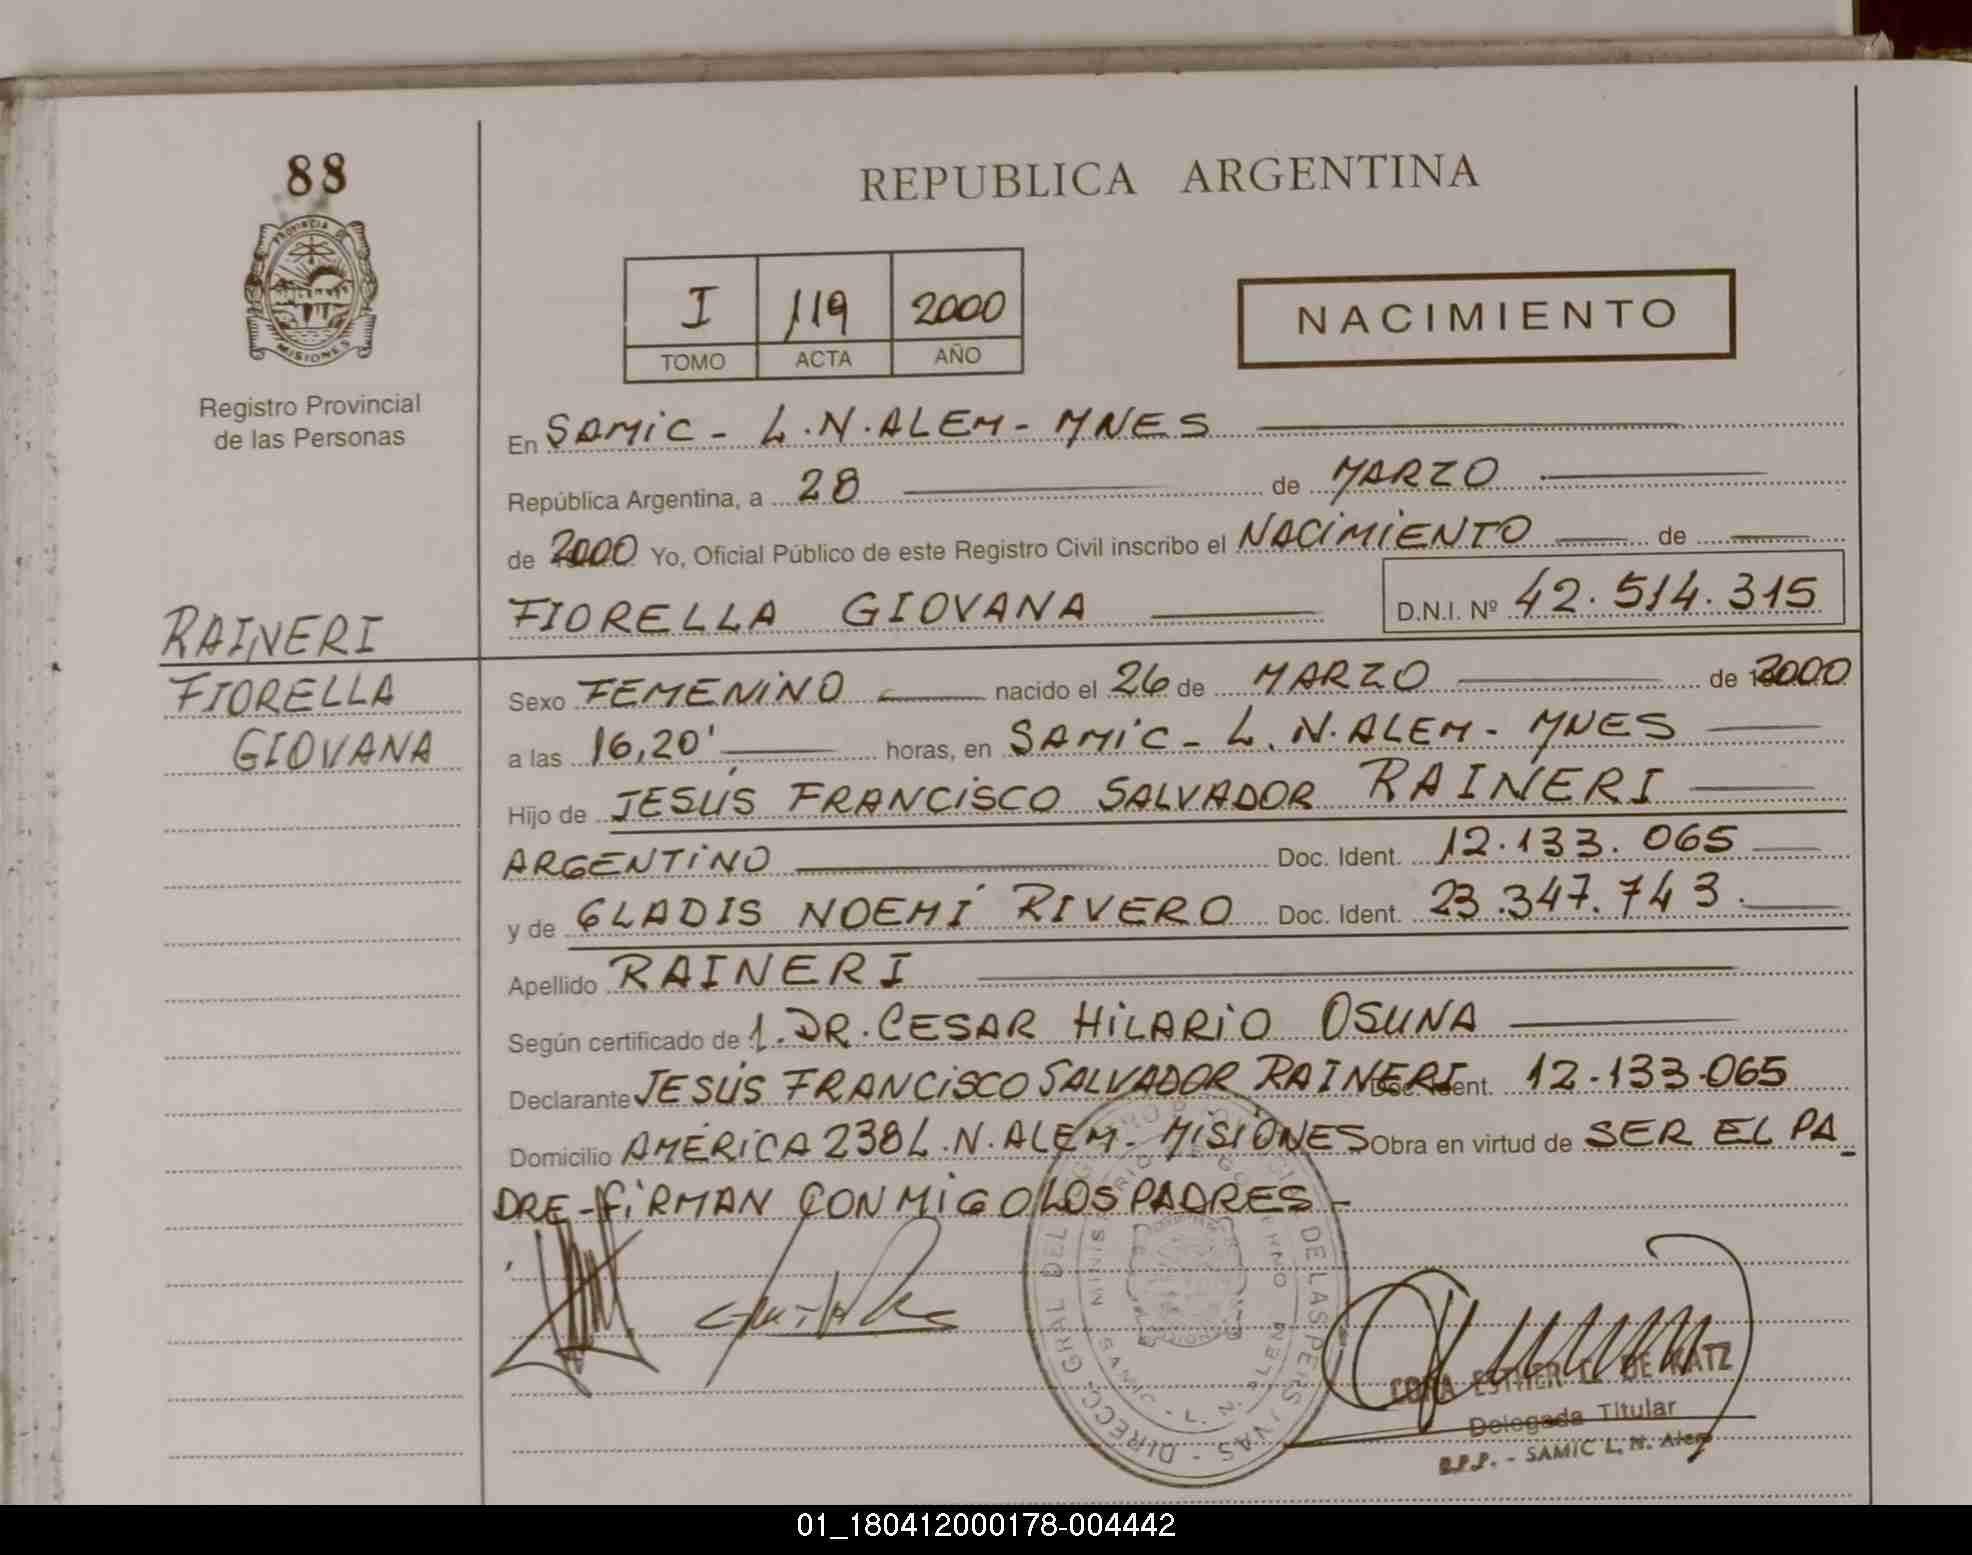 88
REPUBLICA ARGENTINA
PROVINCIA DE
MISIONES
I 119 2000
TOMO ACTA AÑO
NACIMIENTO
Registro Provincial
de las Personas
En SAMiC - L.N.ALEM - MNES
República Argentina, a 28 de MARZO
de 2000 Yo, Oficial Público de este Registro Civil inscribo el NACiMiENTO de
FIORELLA GIOVANA D.N.I. Nº 42.514.315
RAINERI
FIORELLA
GIOVANA
Sexo FEMENiNO nacido el 26 de MARZO de 2000
a las 16,20' horas, en SAMiC - L.N.ALEM - MNES
Hijo de JESÚS FRANCiSCO SALVADOR RAINERI
ARGENTiNO Doc. Ident. 12.133.065
y de GLADIS NOEMÍ RIVERO Doc. Ident. 23.347.743.
Apellido RAINERI
Según certificado de 1. DR. CESAR HiLARiO OSUNA
Declarante JESÚS FRANCiSCO SALVADOR RAINERI Doc. Ident. 12.133.065
Domicilio AMÉRiCA 238 L.N.ALEM - MiSiONES Obra en virtud de SER EL PA_
DRE - FiRMAN CONMiGO LOS PADRES -
DIRECC. GRAL DEL DE LAS PERS
SAMIC - L. N. ALEM
CORA ESTHER DE KATZ
Delegada Titular
R.P.P. - SAMIC L. N. Alem
01_180412000178-004442